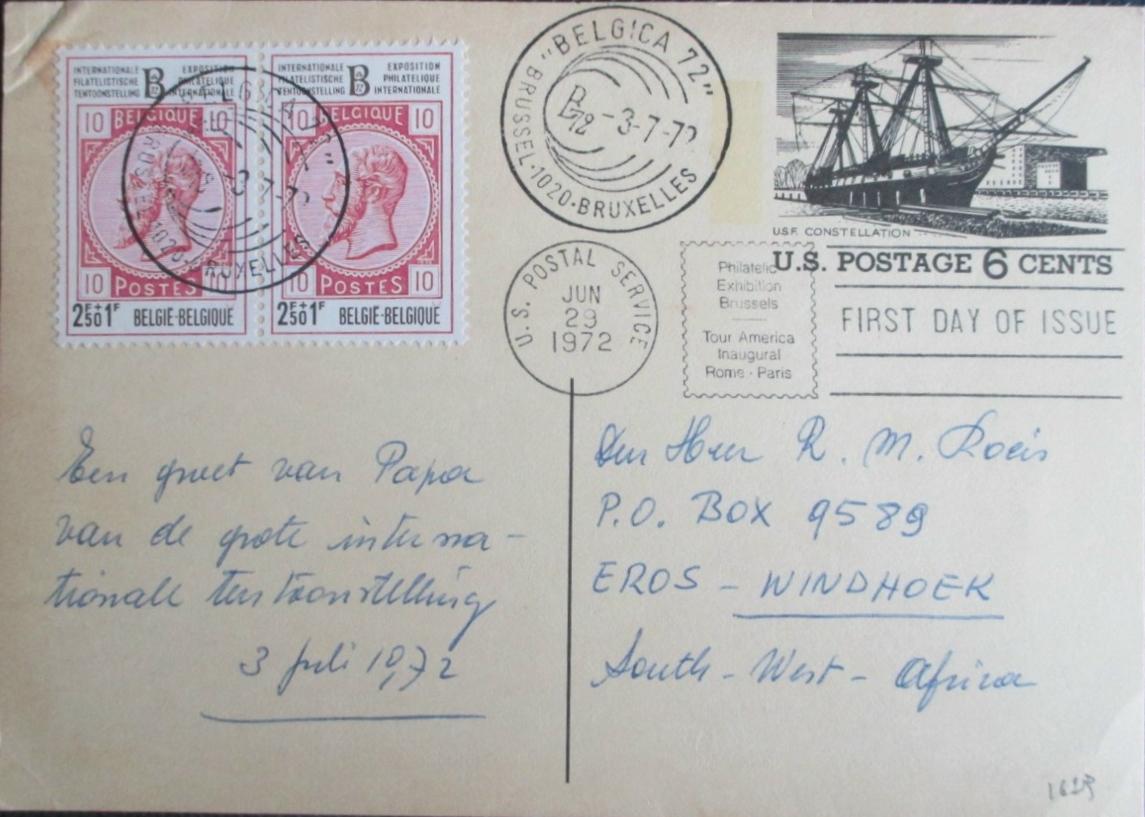 INTERNATIONALE FILATELISTISCHE TENTOONSTELLING
B
EXPOSITION PHILATELIQUE INTERNATIONALE
10 BELGIQUE 10
10 POSTES 10
2F50+1F BELGIË-BELGIQUE
INTERNATIONALE FILATELISTISCHE TENTOONSTELLING
B
EXPOSITION PHILATELIQUE INTERNATIONALE
10 BELGIQUE 10
10 POSTES 10
2F50+1F BELGIË-BELGIQUE
"BELGICA 72"
-3-7-72
BRUSSEL·1020·BRUXELLES
"BELGICA 72"
B 72
-3-7-72
BRUSSEL·1020·BRUXELLES
U.S.F. CONSTELLATION
U.S. POSTAGE 6 CENTS
U. S. POSTAL SERVICE
JUN
29
1972
Philatelic
Exhibition
Brussels
Tour America
Inaugural
Rome · Paris
FIRST DAY OF ISSUE
Een groet van Papa
van de grote interna-
tionale tentoonstelling
3 juli 1972
Den Heer R. M.
P.O. BOX 9589
EROS - WINDHOEK
South-West-Africa